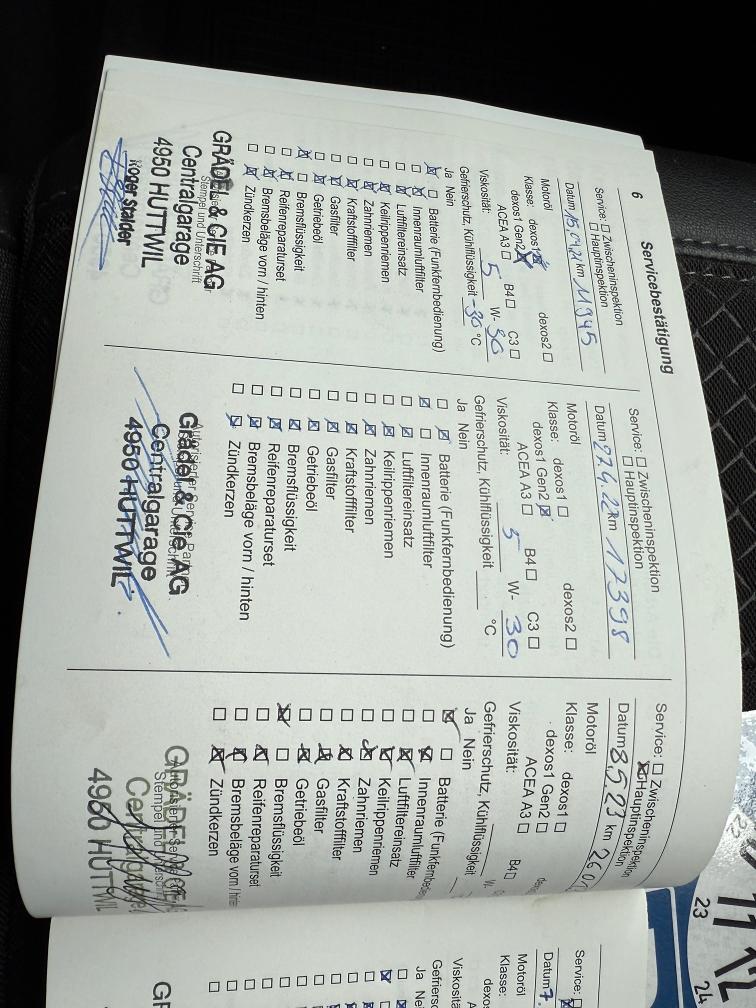 6
Servicebestätigung
Service: Zwischeninspektion
Hauptinspektion
Datum 15.04.21 km 11945
Motoröl
Klasse: dexos1 dexos2
dexos1 Gen2
ACEA A3 B4 C3
Viskosität: 5 W- 30
Gefrierschutz, Kühlflüssigkeit -30 °C
Ja Nein
Batterie (Funkfernbedienung)
Innenraumluftfilter
Luftfiltereinsatz
Keilrippenriemen
Zahnriemen
Kraftstofffilter
Gasfilter
Getriebeöl
Bremsflüssigkeit
Reifenreparaturset
Bremsbeläge vorn / hinten
Zündkerzen
Stempel und Unterschrift
GRÄDEL & CIE AG
Centralgarage
4950 HUTTWIL
Roger Stalder
Service: Zwischeninspektion
Hauptinspektion
Datum 27.4.22 km 17398
Motoröl
Klasse: dexos1 dexos2
dexos1 Gen2
ACEA A3 B4 C3
Viskosität: 5 W- 30
Gefrierschutz, Kühlflüssigkeit °C
Ja Nein
Batterie (Funkfernbedienung)
Innenraumluftfilter
Luftfiltereinsatz
Keilrippenriemen
Zahnriemen
Kraftstofffilter
Gasfilter
Getriebeöl
Bremsflüssigkeit
Reifenreparaturset
Bremsbeläge vorn / hinten
Zündkerzen
Grädel & Cie AG
Centralgarage
4950 HUTTWIL
Service: Zwischeninspektion
Hauptinspektion
Datum 8.5.23 km 260
Motoröl
Klasse: dexos1
dexos1 Gen2
ACEA A3 B4
Viskosität: W-
Gefrierschutz, Kühlflüssigkeit
Ja Nein
Batterie (Funkfernbedie
Innenraumluftfilter
Luftfiltereinsatz
Keilrippenriemen
Zahnriemen
Kraftstofffilter
Gasfilter
Getriebeöl
Bremsflüssigkeit
Reifenreparaturset
Bremsbeläge vorn / hinte
Zündkerzen
GRÄDEL
Centralgarage
4950 HUTTWIL
Service:
Datum 7.
Motoröl
Klasse:
Viskosität
Gefriers
Ja Ne
GR
23
24